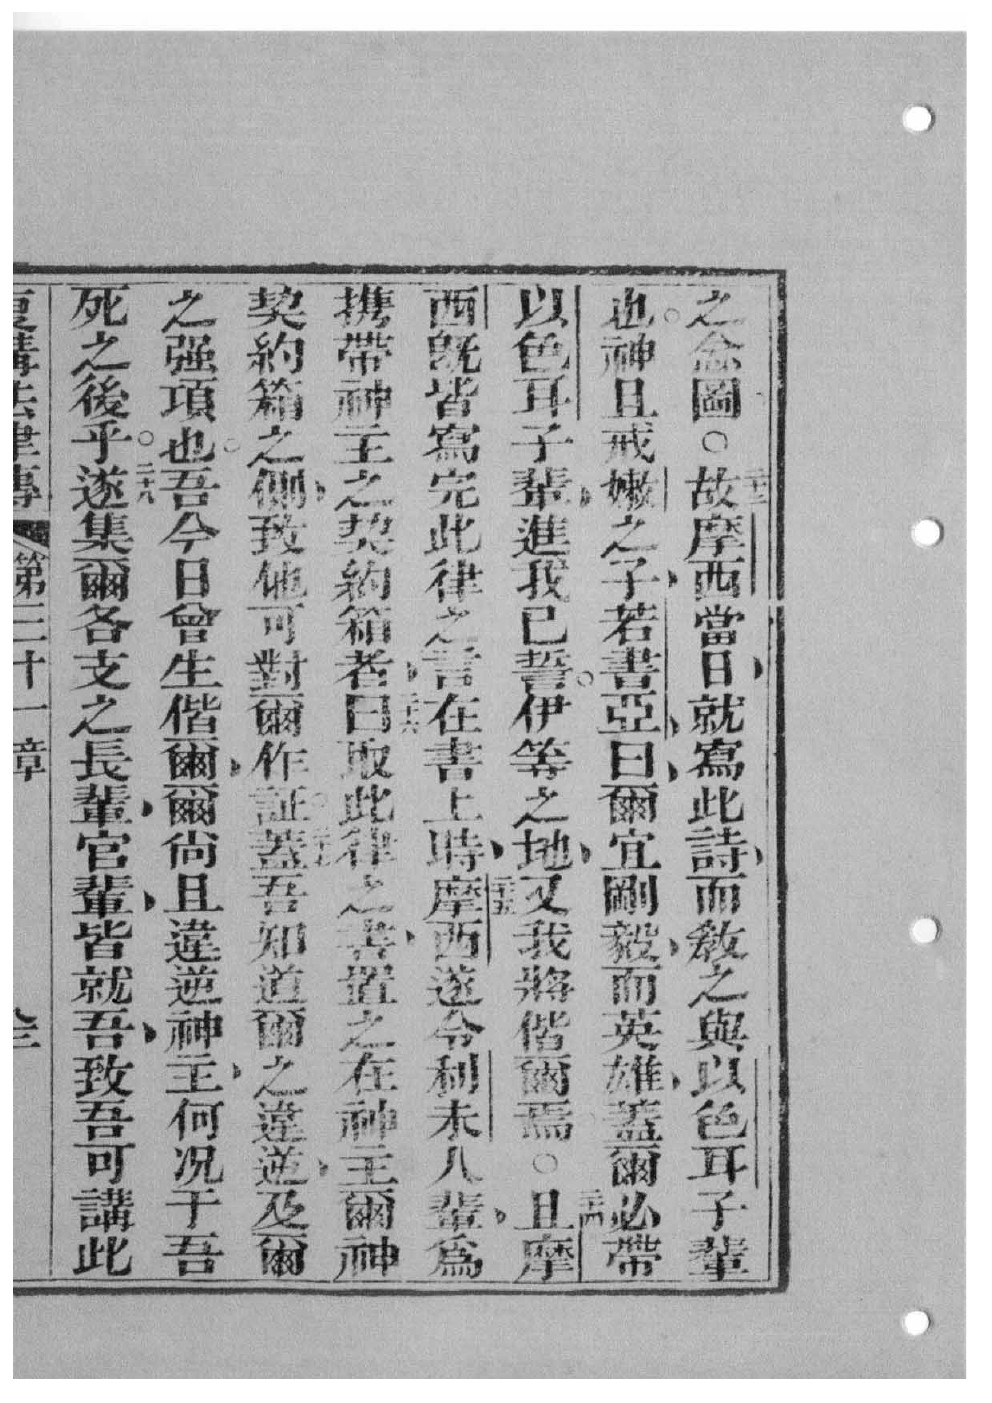 之念圖○故摩西當日就寫此詩而教之與以色耳子輩
二十二
也神且戒嫩之子若書亞曰爾宜剛毅而英雄蓋爾必帶
以色耳子輩進我已誓伊等之地又我將偕爾焉○且摩
二十四
西旣皆寫完此律之書在書上時摩西遂令利未人輩爲
二十五
携帶神主之契約箱者曰取此律之書置之在神主爾神
二十六
契約箱之側致他可對爾作証蓋吾知道爾之違逆及爾
二十七
之强項也吾今日曾生偕爾爾尙且違逆神主何况于吾
死之後乎遂集爾各支之長輩官輩皆就吾致吾可講此
二十八
復講法律傳 第三十一章